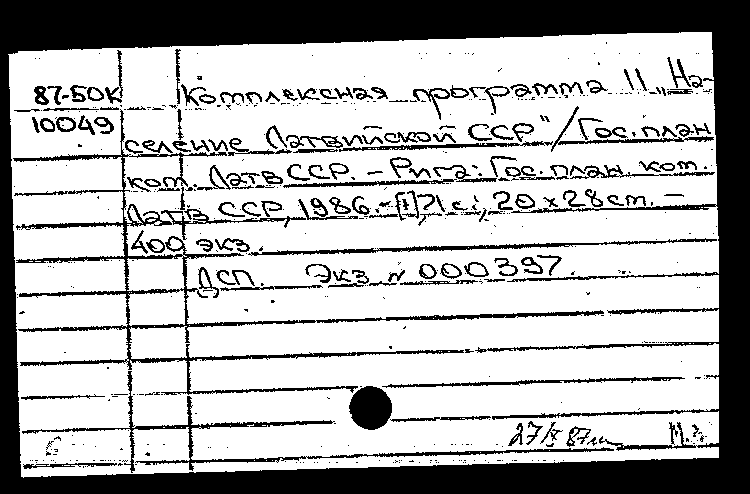 87-50К Комплексная программа II „На-
10049 селение Латвийской ССР"/Гос. план
ком. Латв ССР. – Рига: Гос. план. ком.
Латв ССР, 1986. – [1], 71 с.; 20 x 28 cm. –
400 экз.
ДСП. Экз № 000397.
27/X 87